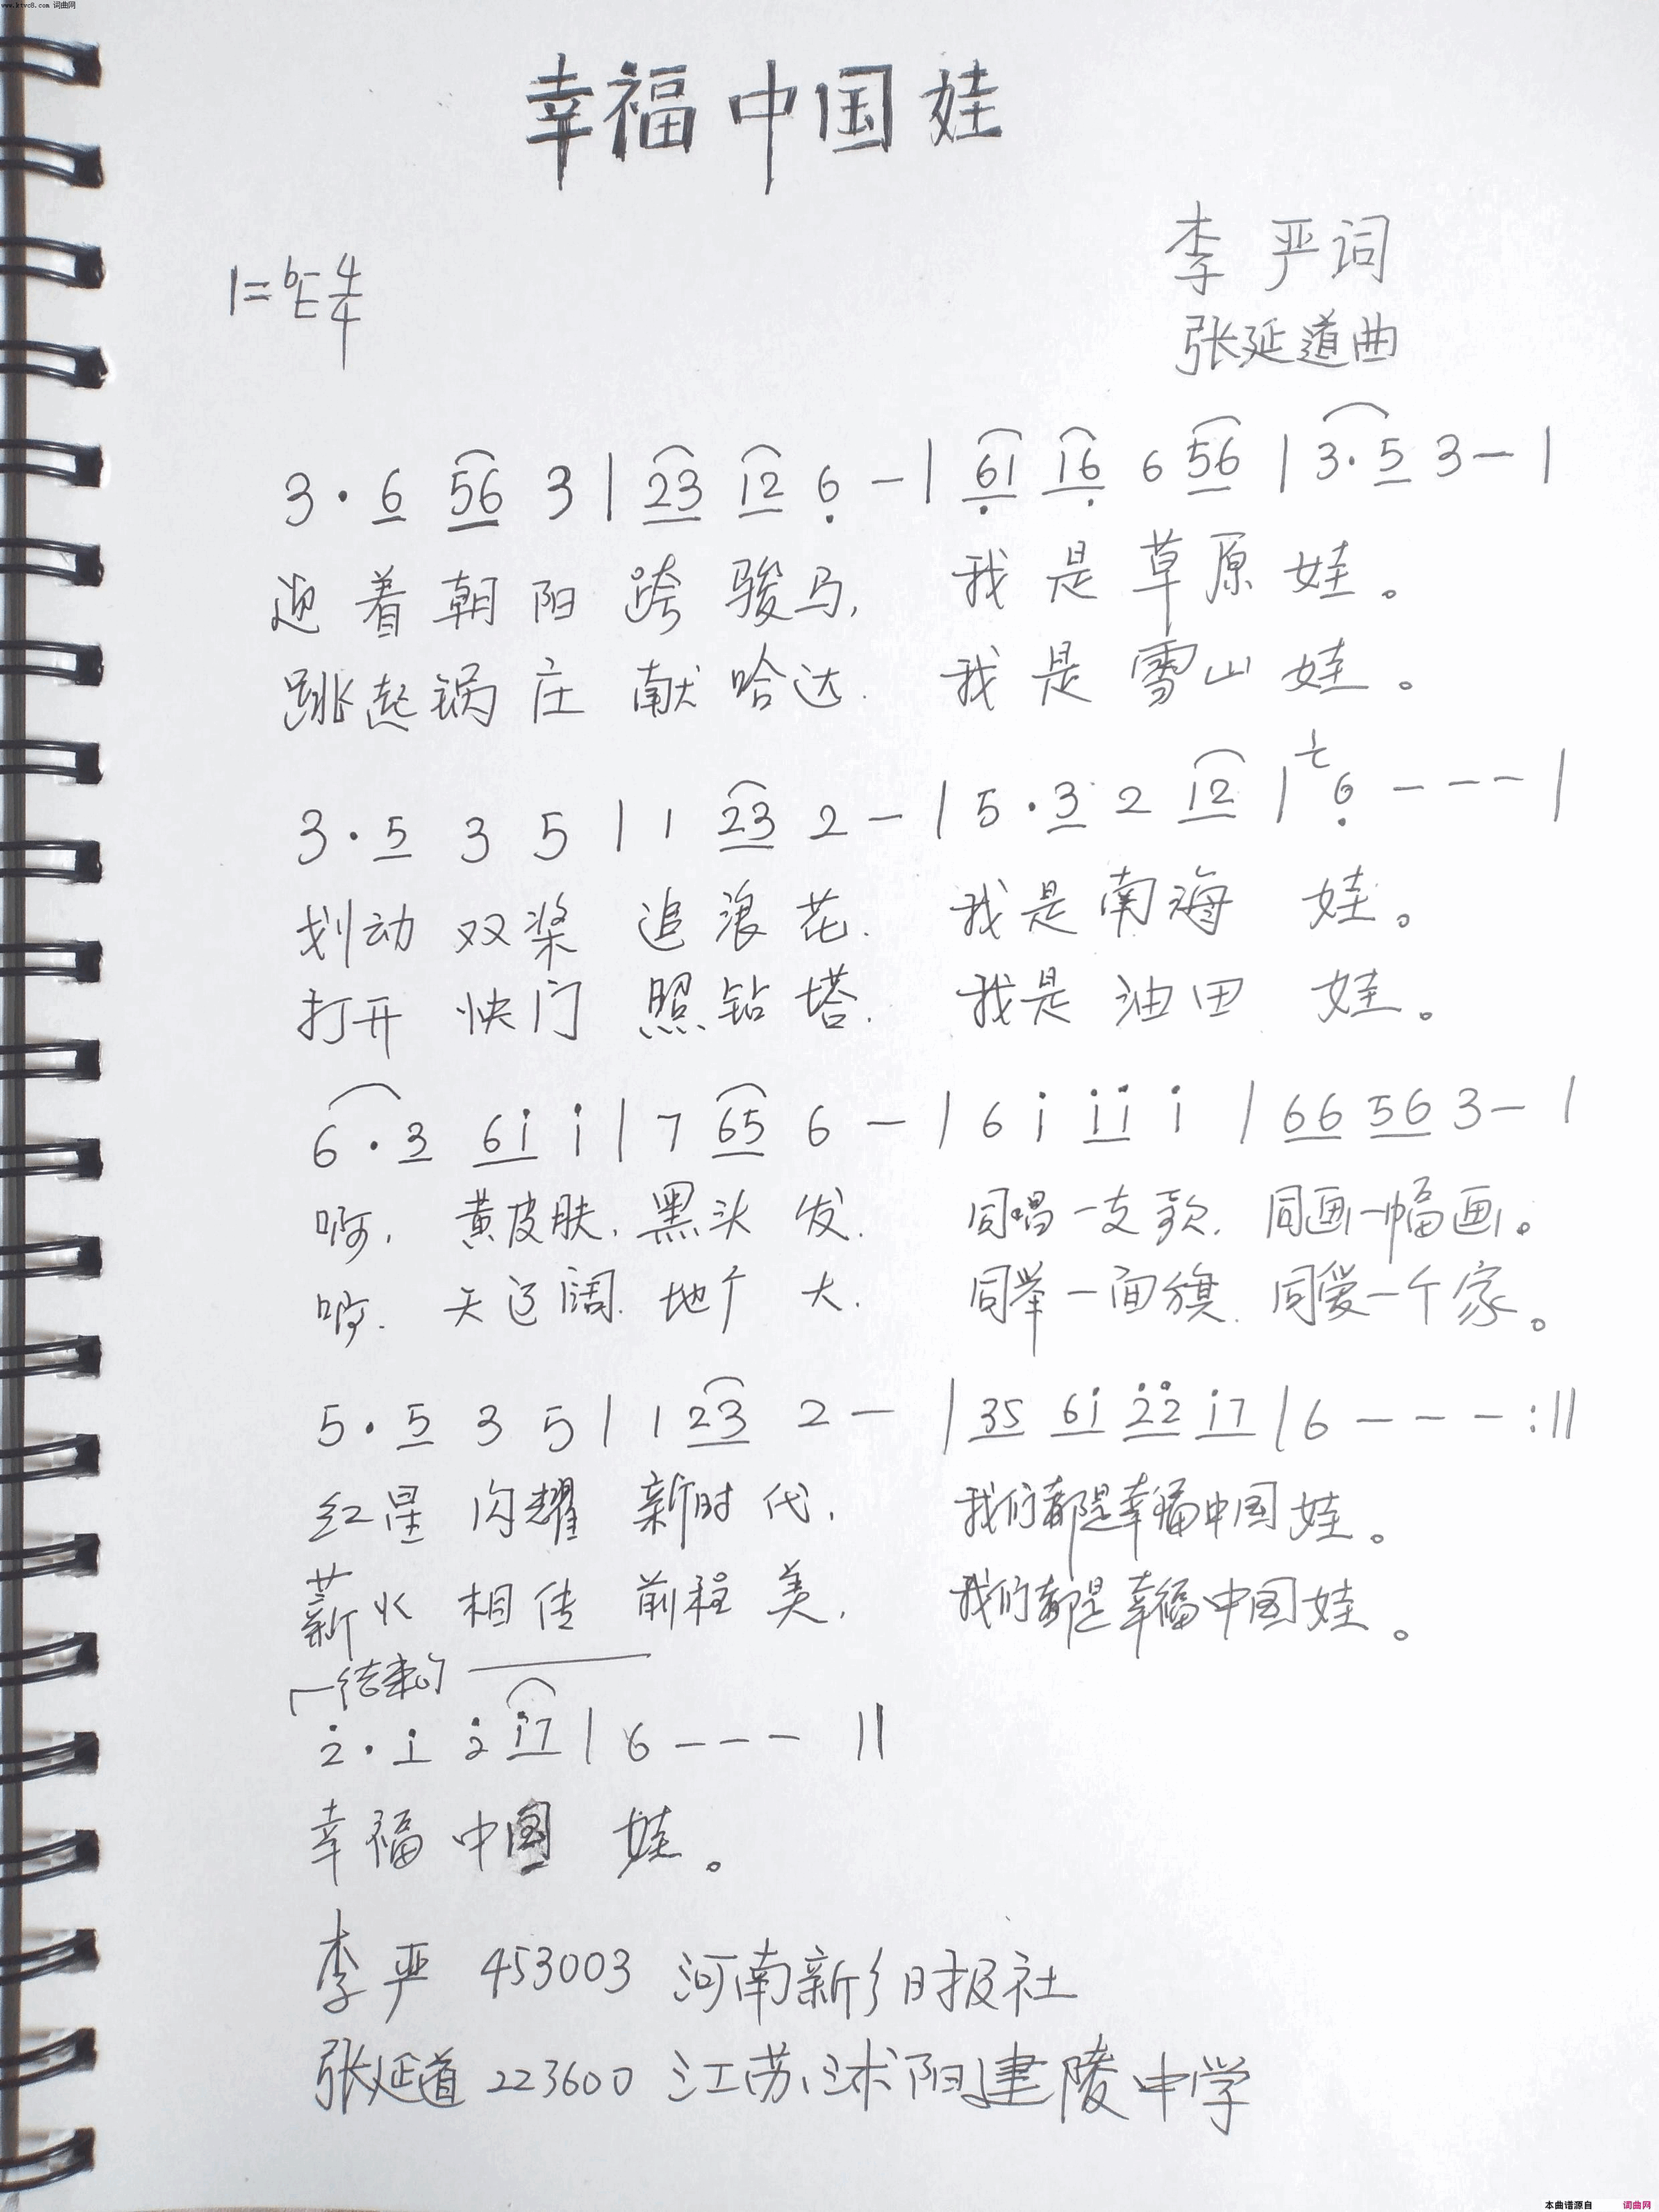 www.ktvc8.com 词曲网
幸福中国娃
李严词
1=♭E 4/4
张延道曲
3·6 56 3 | 23 12 6̣ - | 6̣1 16̣ 6 56 | 3·5 3 - |
迎着朝阳跨骏马, 我是草原娃。
跳起锅庄献哈达. 我是雪山娃。
3·5 3 5 | 1 23 2 - | 5·3 2 12 | 6̣ - - - |
划动双桨追浪花. 我是南海娃。
打开快门照钻塔. 我是油田娃。
6·3 6i i | 7 65 6 - | 6 i ii i | 66 56 3 - |
啊, 黄皮肤, 黑头发. 同唱一支歌. 同画一幅画。
啊. 天辽阔. 地广大. 同举一面旗. 同爱一个家。
5·5 3 5 | 1 23 2 - | 35 6i 2̇2̇ i7 | 6 - - - :||
红星闪耀新时代, 我们都是幸福中国娃。
薪火相传前程美, 我们都是幸福中国娃。
结束句
2̇·i 2̇ i7 | 6 - - - ||
幸福中国娃。
李严 453003 河南新乡日报社
张延道 223600 江苏沭阳建陵中学
本曲谱源自 词曲网